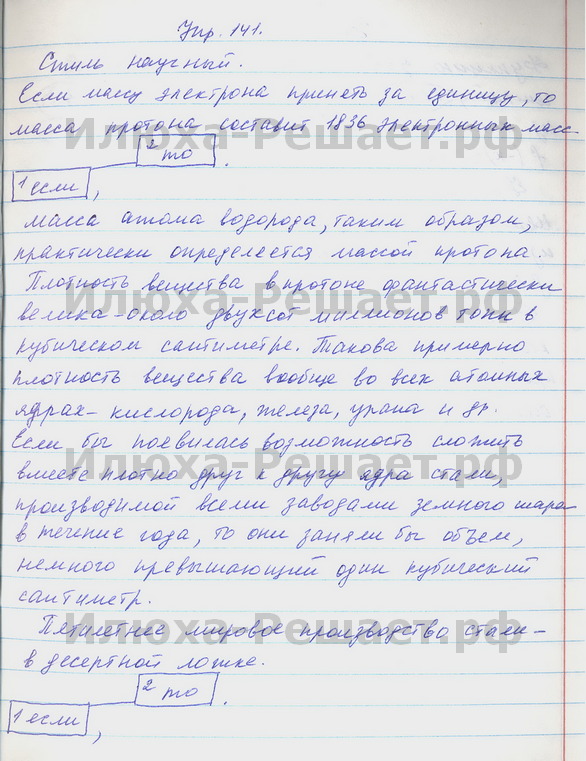 Упр. 141.
Стиль научный.
Если массу электрона принять за единицу, то
масса протона составит 1836 электронных масс.
Илюха-Решает.рф
2 то .
1 если ,
масса атома водорода, таким образом,
практически определяется массой протона.
Плотность вещества в протоне фантастически
Илюха-Решает.рф
велика - около двухсот миллионов тонн в
кубическом сантиметре. Такова примерно
плотность вещества вообще во всех атомных
ядрах - кислорода, железа, урана и др.
Если бы появилась возможность сложить
Илюха-Решает.рф
вместе плотно друг к другу ядра стали,
производимой всеми заводами земного шара
в течение года, то они заняли бы объем,
немного превышающий один кубический
сантиметр.
Илюха-Решает.рф
Пятилетнее мировое производство стали -
в десертной ложке.
2 то .
1 если ,